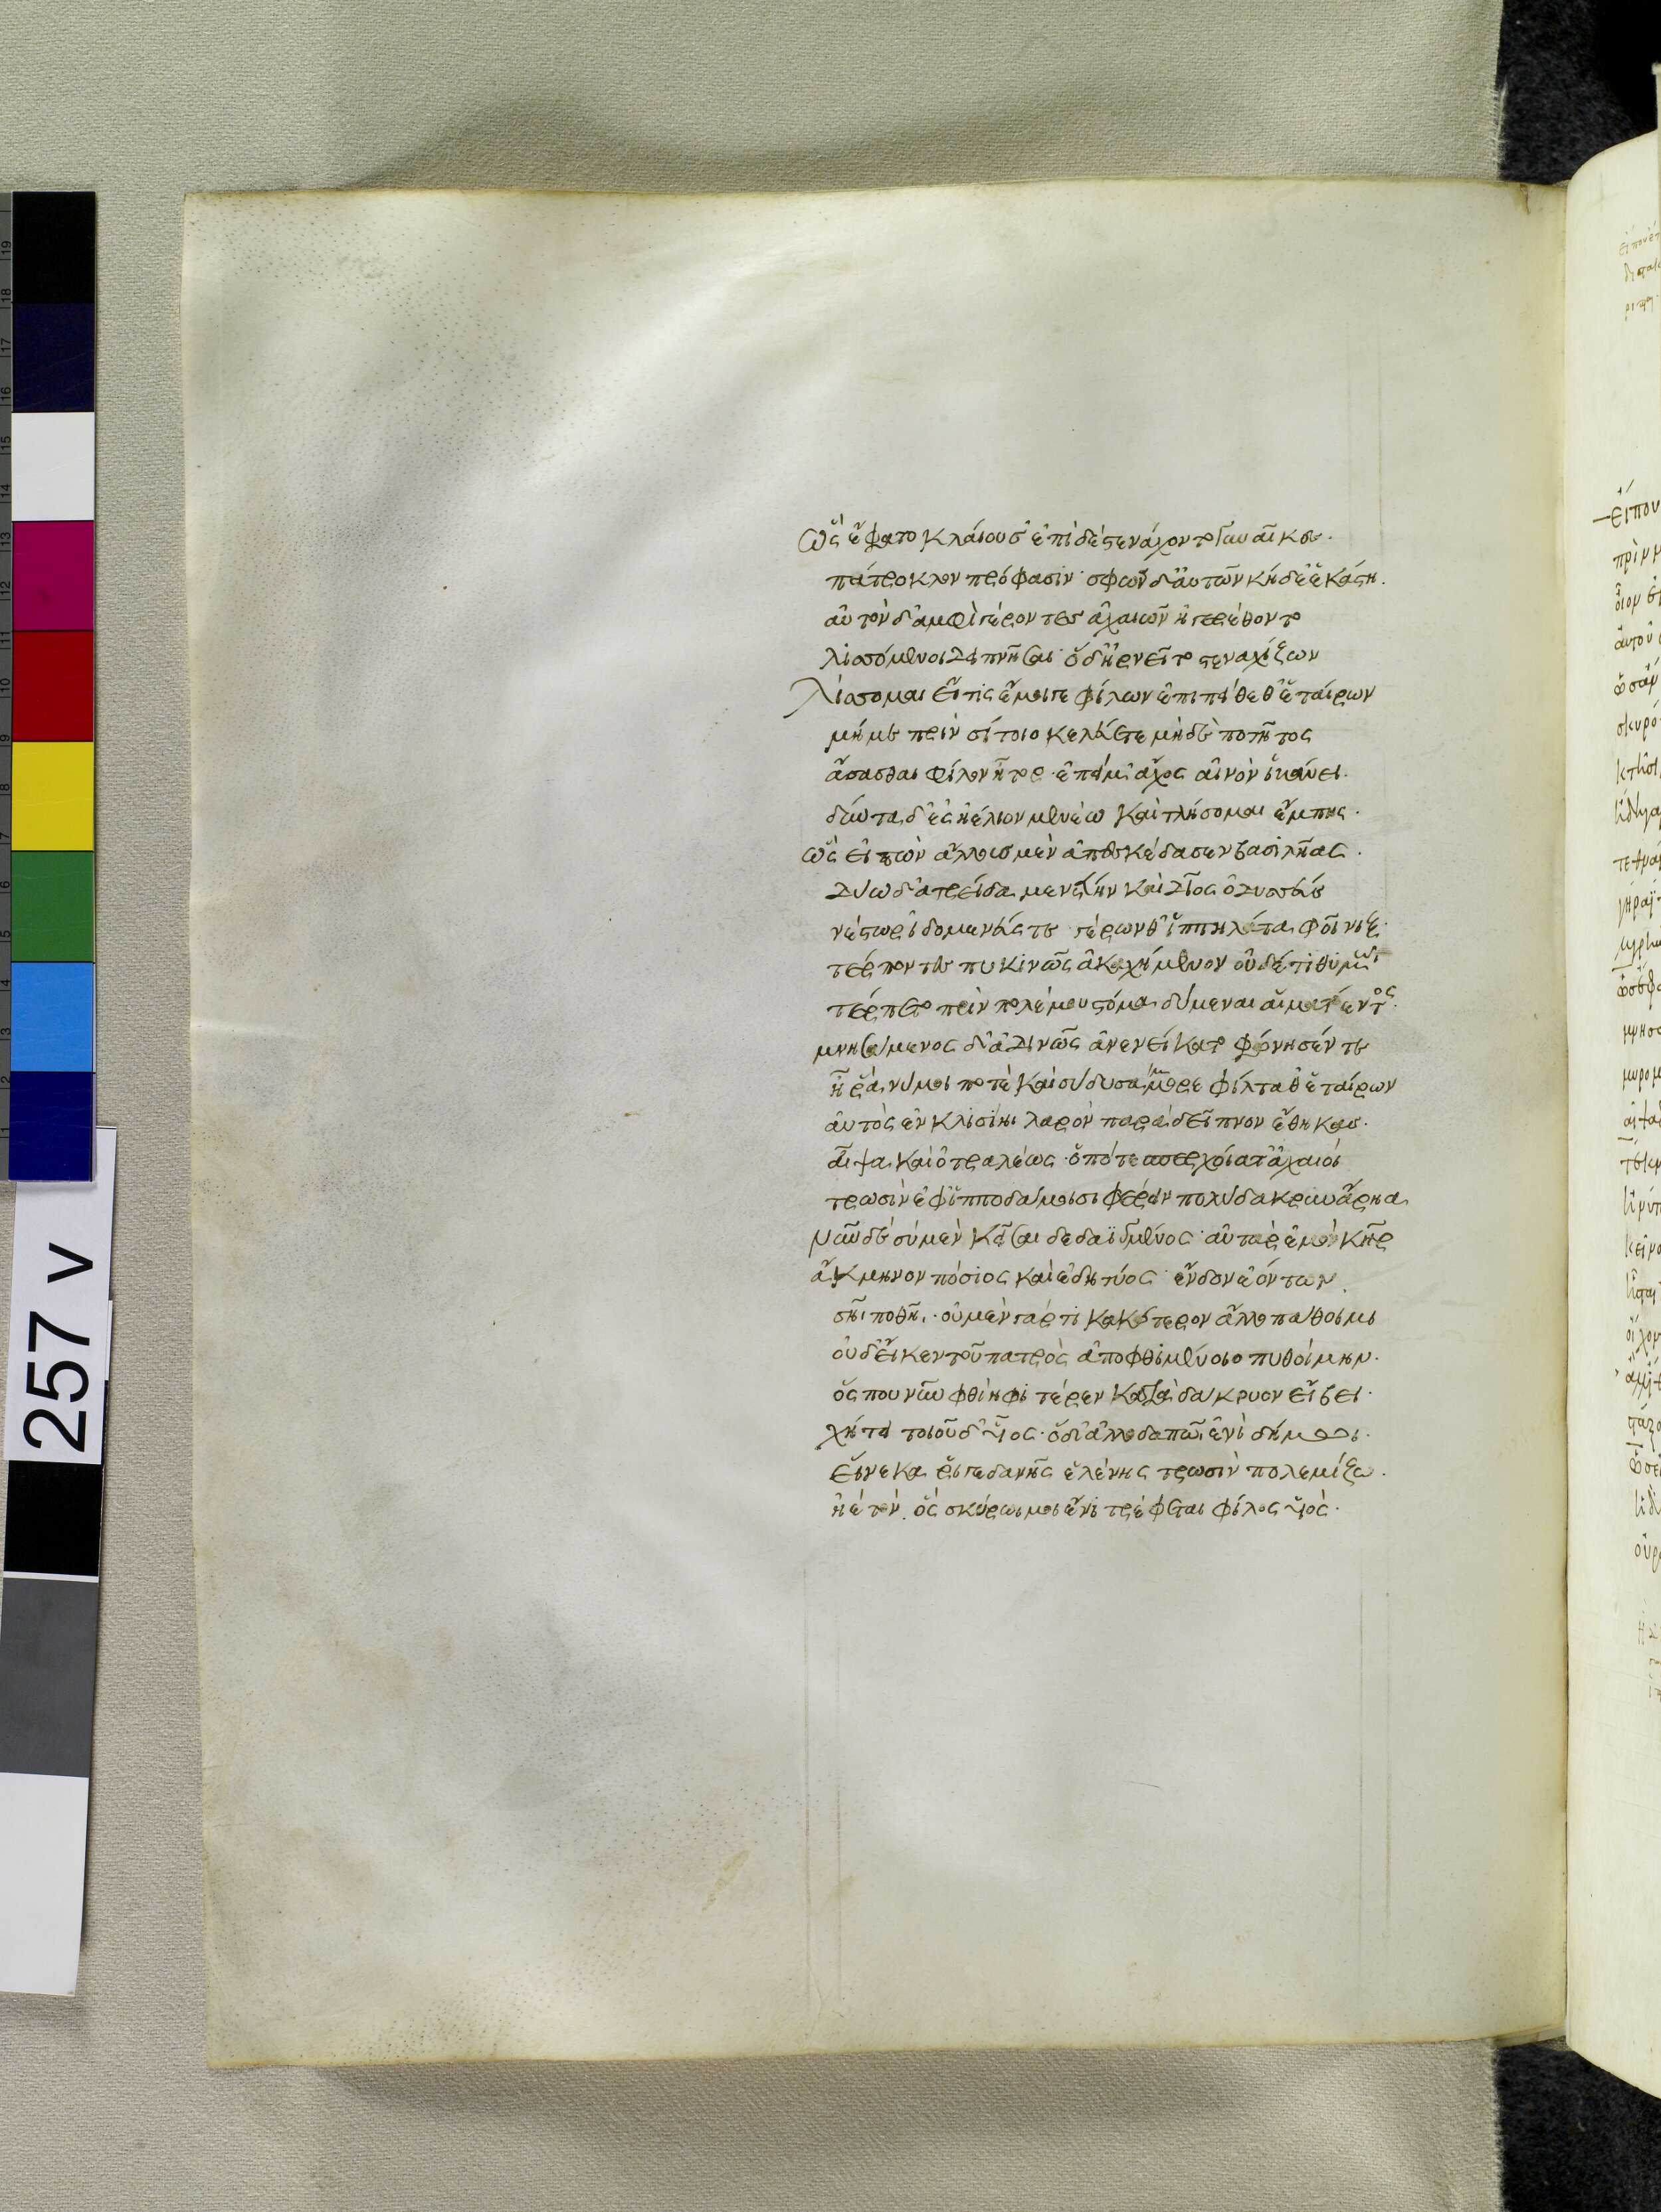 ὣς ἔφατο κλαίουσ' ἐπὶ δὲ στενάχοντο γυναῖκες.
πάτροκλον πρόφασιν· σφῶν δ' αὐτῶν κήδε' ἑκάστη.
αὐτὸν δ' ἀμφὶ γέροντες ἀχαιῶν ἠγερέθοντο
λισσόμενοι δειπνῆσαι· ὃ δ' ἠρνεῖτο στεναχίζων
λίσσομαι εἴ τις ἔμοιγε φίλων ἐπιπείθεθ' ἑταίρων
μή με πρὶν σίτοιο κελεύετε μὴ δὲ ποτῆτος
ἄσασθαι φίλον ἦτορ· ἐπεί μ' ἄχος αἰνὸν ἱκάνει.
δύντα δ' ἐς ἠέλιον μενέω καὶ τλήσομαι ἔμπης.
ὣς εἰπὼν ἄλλους μὲν ἀπεσκέδασεν βασιλῆας.
δύω δ' ἀτρείδα μενέτην καὶ δῖος ὀδυσσεύς
νέστωρ ἰδομενεύς τε γέρων θ' ἱππηλάτα φοῖνιξ.
τέρποντες πυκινῶς ἀκαχήμενον οὐδέ τι θυμῶι
τέρπετο πρὶν πολέμου στόμα δύμεναι αἱματόεντος.
μνησάμενος δ' ἁδινῶς ἀνενείκατο φώνησέν τε
ἦ ῥά νύ μοι ποτὲ καὶ σὺ δυσάμμορε φίλταθ' ἑταίρων
αὐτὸς ἐν κλισίηι λαρὸν παρὰ δεῖπνον ἔθηκας.
αἶψα καὶ ὀτραλέως· ὁπότε σπερχοίατ' ἀχαιοί
τρωσὶν ἐφ' ἱπποδάμοισι φέρειν πολύδακρυν ἄρηα
νῦν δὲ σὺ μὲν κεῖσαι δεδαϊγμένος· αὐτὰρ ἐμὸν κῆρ
ἄκμηνον πόσιος καὶ ἐδητύος ἔνδον ἐόντων
σῆι ποθῆι. οὐ μὲν γάρ τι κακώτερον ἄλλο πάθοιμι
οὐδ' εἴ κεν τοῦ πατρὸς ἀποφθιμένοιο πυθοίμην.
ὅς που νῦν φθίηφι τέρεν κατὰ δάκρυον εἴβει.
χήτει τοιοῦδ' υἷος· ὃ δ' ἀλλοδαπῶι ἐνὶ δήμωι.
εἵνεκα ῥιγεδανῆς ἑλένης τρωσὶν πολεμίζω.
ἠὲ τὸν ὃς σκύρωι μοι ἔνι τρέφεται φίλος υἱός.